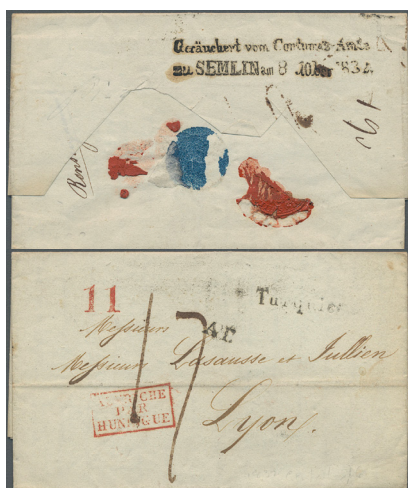 Geräuchert vom Contumaz-Amte
zu SEMLIN am 8
Rons
11
Turquie
Messieurs
A.T.
Messieurs Lasausse et Jullien
17
AUTRICHE
PAR
HUNINGUE
Lyon.